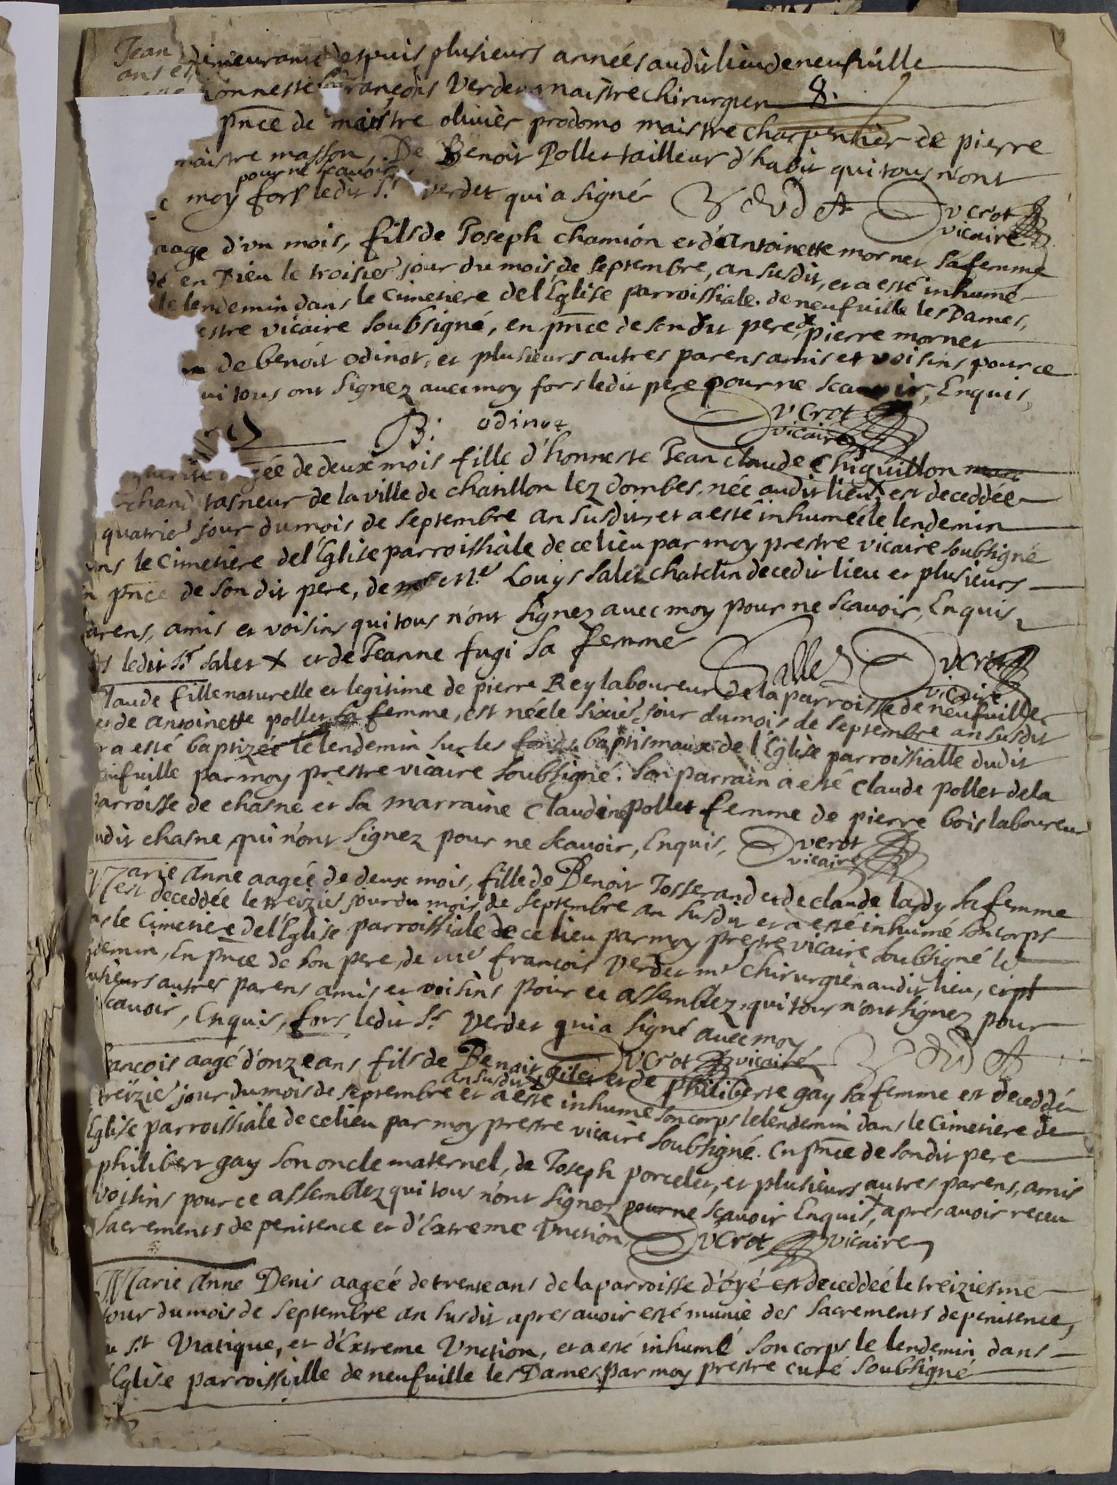 Jean demeurant despuis plusieurs années audit lieu de neufuille
ans et honneste françois Verder maistre chirurgien 8.
pnce de maistre olivier prodomo maistre charpentier de pierre
maistre masson, De Benoit Pollet tailleur d'habit qui tous n'ont
pour ne scauoir
moy fors ledit Sr Verdet qui a signé Verdet Verot
vicaire
aage d'vn mois, fils de Joseph chamion et d'Antoinette mornet sa femme
dé en Dieu le troisie' jour du mois de septembre, an susdit, et a esté inhumé
le lendemin dans le Cimetiere de l'Eglise parroissiale de neufuille les Dames,
estre vicaire soubsigné, en pnce de son dit pere, pierre mornet
de benoit odinot, et plusieurs autres parens amis et voisins pour ce
ui tous ont signez auec moy fors ledit pere pour ne scauoir, Enquis,
B: odinot Verot
vicaire
agée de deux mois fille d'honneste Jean claude Chiquillon mar
chand tasneur de la ville de chatillon lez dombes, née audit lieu est deceddée
quatrie' jour du mois de septembre an susdit et a esté inhumée le lendemin
ans le Cimetiere de l'Eglise parroissiale de ce lieu par moy prestre vicaire soubsigné
n pnce de son dit pere, de Me Louys Salet chatelin de cedit lieu et plusieurs
arens, amis et voisins qui tous n'ont signez auec moy pour ne scauoir, Enquis,
rs ledit Sr Salet X et de Jeanne fugi sa femme Sallet Verot
vicaire
laude fille naturelle et legitime de pierre Rey laboureur de la parroisse de neufuille
et de Antoinette pollet sa femme, est née le sixie' jour du mois de septembre an susdit
t a esté baptizée le lendemin sur les fonds baptismaux de l'Eglise parroissialle dudit
eufuille par moy prestre vicaire soubsigné. son parrain a esté claude pollet de la
parroisse de chasne et sa marraine Claudine pollet femme de pierre bois laboureur
udit chasne, qui n'ont signez pour ne scauoir, Enquis, Verot
vicaire
Marie Anne aagée de deux mois, fille de Benoit Josserand et de claude lardy sa femme
est deceddée le treizie' jour du mois de septembre an susdit et a esté inhumé son corps
ns le Cimetiere de l'Eglise parroissiale de ce lieu par moy prestre vicaire soubsigné le
demin, En pnce de son pere, de me françois Verdet mr chirurgien audit lieu, et pl
usieurs autres parens amis et voisins pour ce assemblez, qui tous n'ont signez pour
scauoir, Enquis, fors ledit Sr Verdet qui a signé auec moy,
Verot vicaire Verdet
françois aagé d'onze ans, fils de Benoit Gilet et de philiberte gay sa femme est deceddé
an susdit X
treizie' jour du mois de septembre et a esté inhumé son corps le lendemin dans le Cimetiere de
Eglise parroissiale de ce lieu par moy prestre vicaire soubsigné. En pnce de sondit pere
philibert gay son oncle maternel, de Joseph porcelet, et plusieurs autres parens, amis
voisins pour ce assemblez qui tous n'ont signez pour ne scauoir Enquis, apres auoir receu
sacrements de penitence et d'Extreme Vnction, Verot vicaire
Marie Anne Denis aagée de trente ans de la parroisse d'oyé est deceddée le treiziesme
jour du mois de septembre an susdit apres auoir esté munie des sacrements de penitence,
u St Viatique, et d'Extreme Vnction, et a esté inhumé son corps le lendemin dans
l'Eglise parroissialle de neufuille les Dames, par moy prestre curé soubsigné